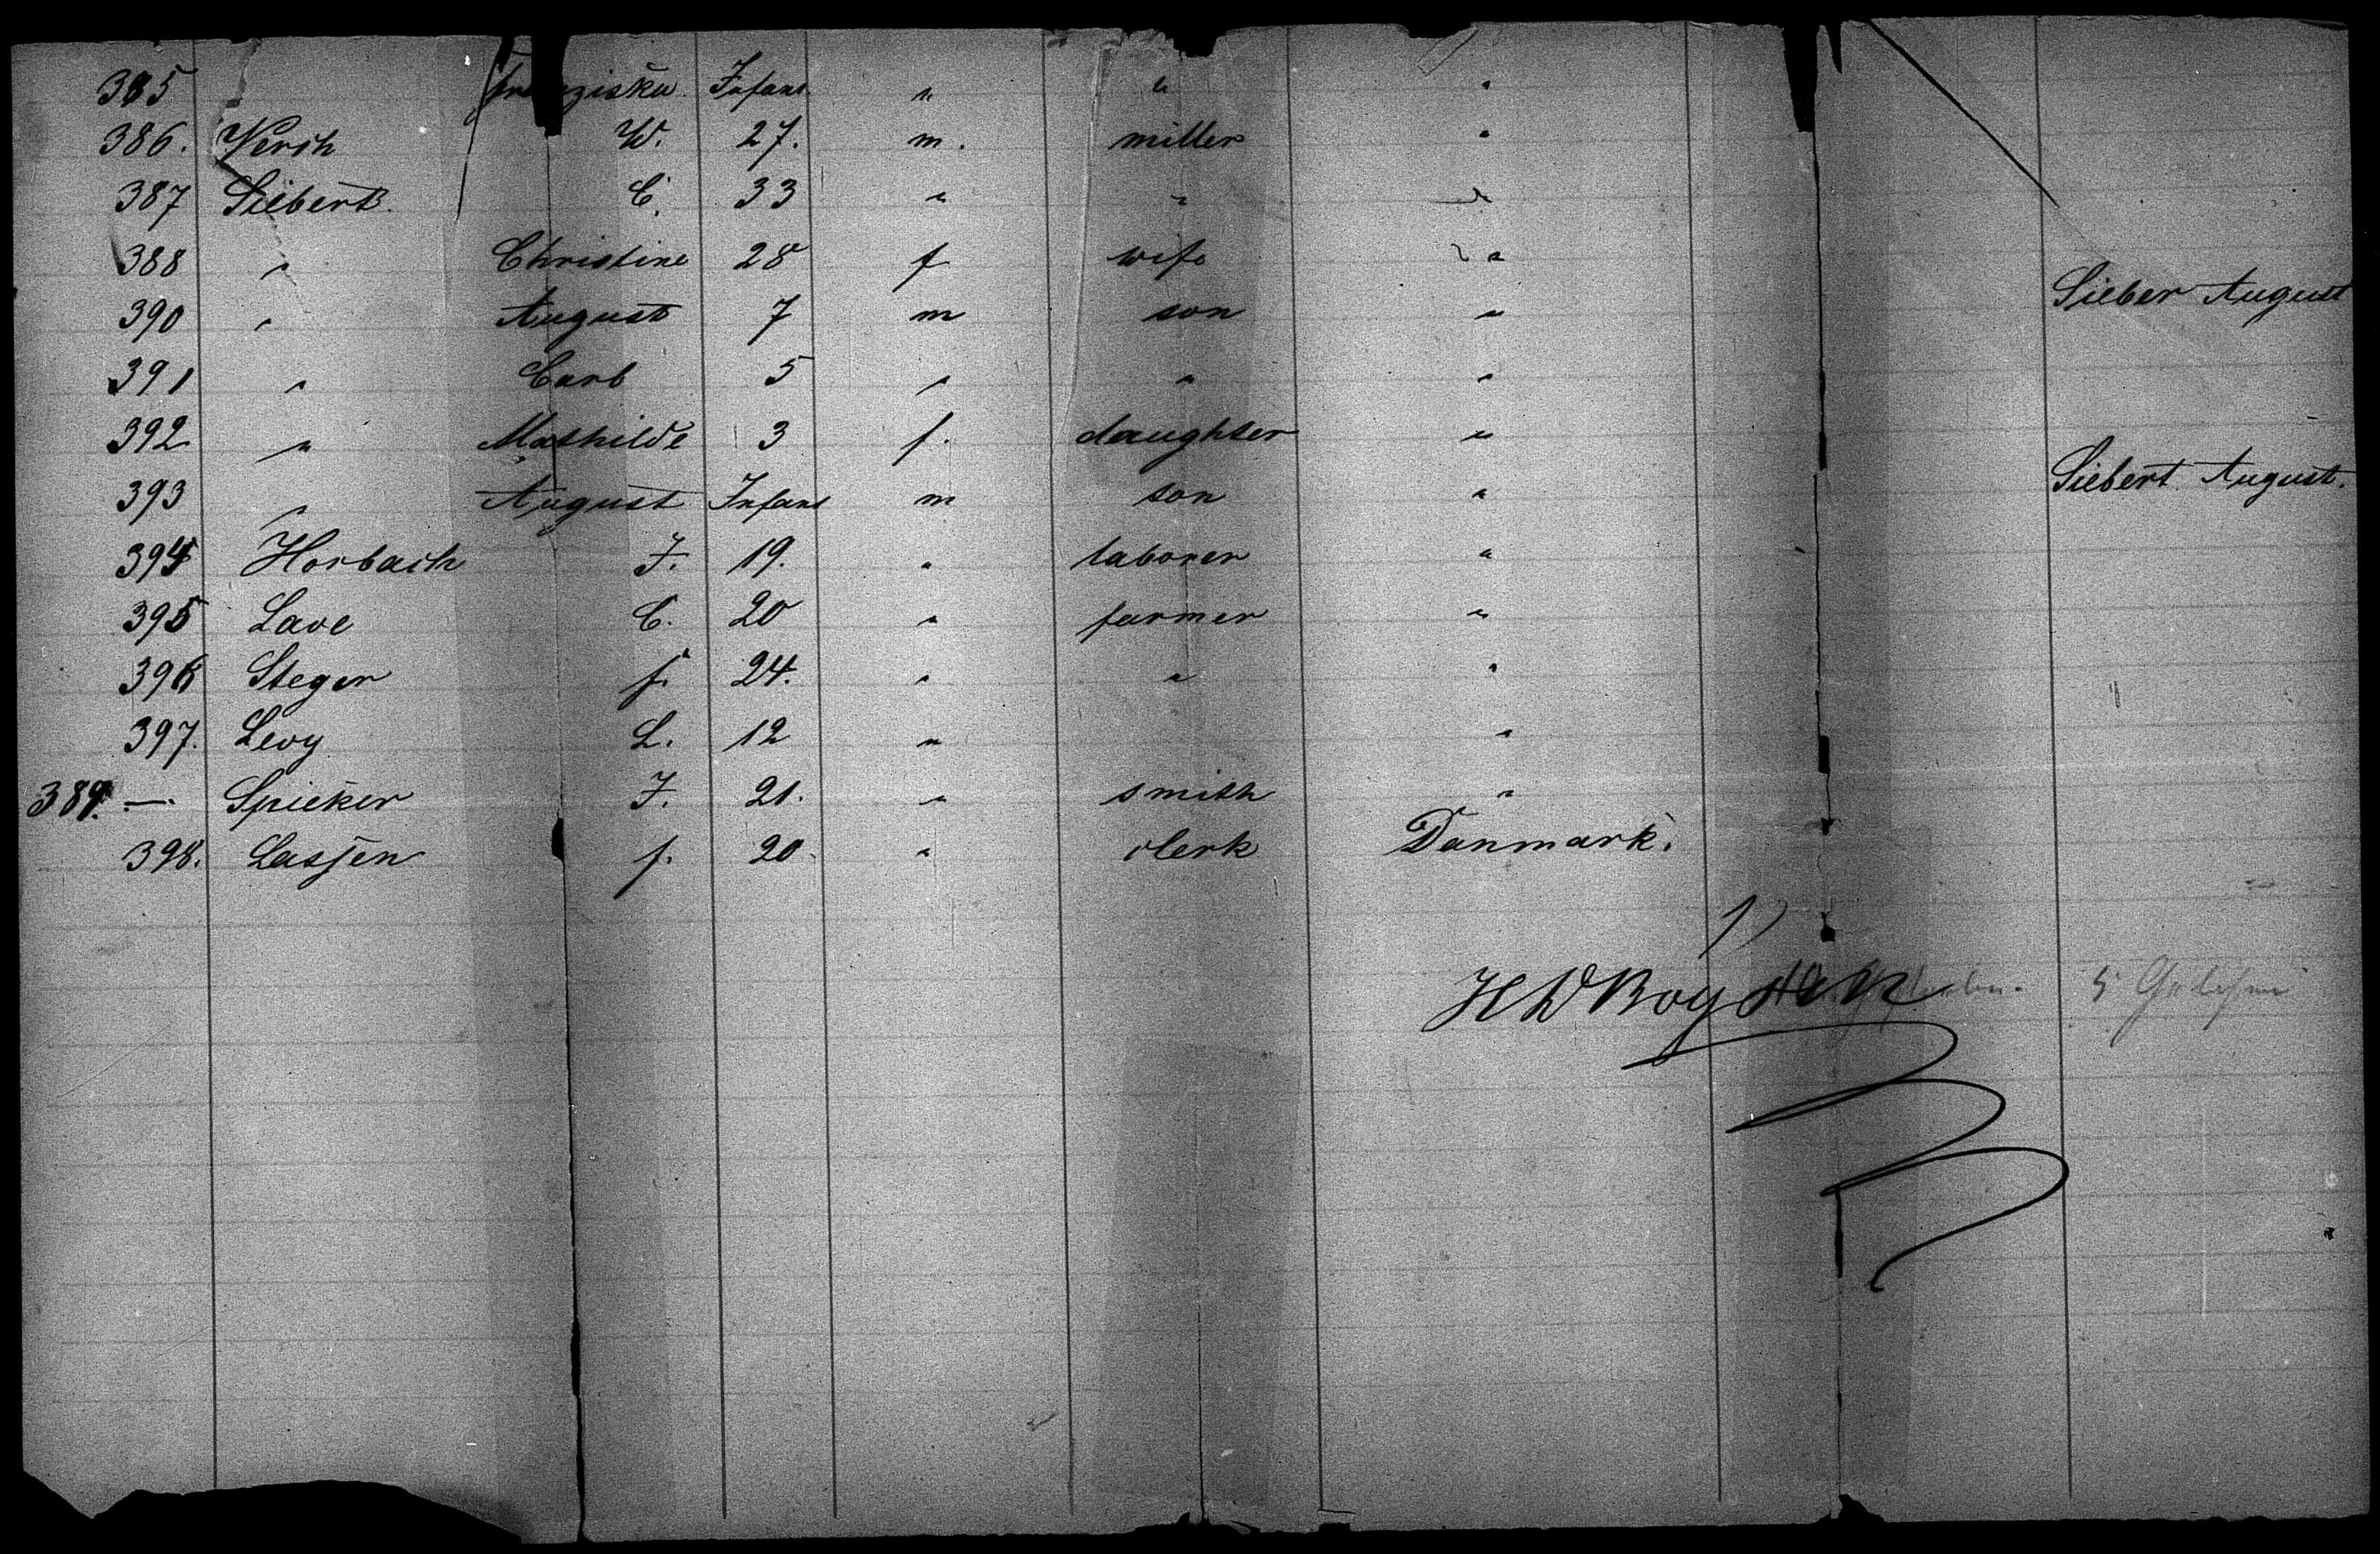 385 Franziska Infant " " "
386. Versch W. 27. m. miller "
387 Siebert C. 33 " " "
388 " Christine 28 f wife "
390 " August 7 m son " Sieber August
391 " Carl 5 " " "
392 " Mathilde 3 f. daughter "
393 " August Infant m son " Siebert August.
394 Horbach J. 19. " laborer "
395 Lave C. 20 " farmer "
396 Steger f. 24. " " "
397. Levy L. 12 " "
389. — Spieker J. 21. " smith "
398. Lassen f. 20. " clerk Danmark.